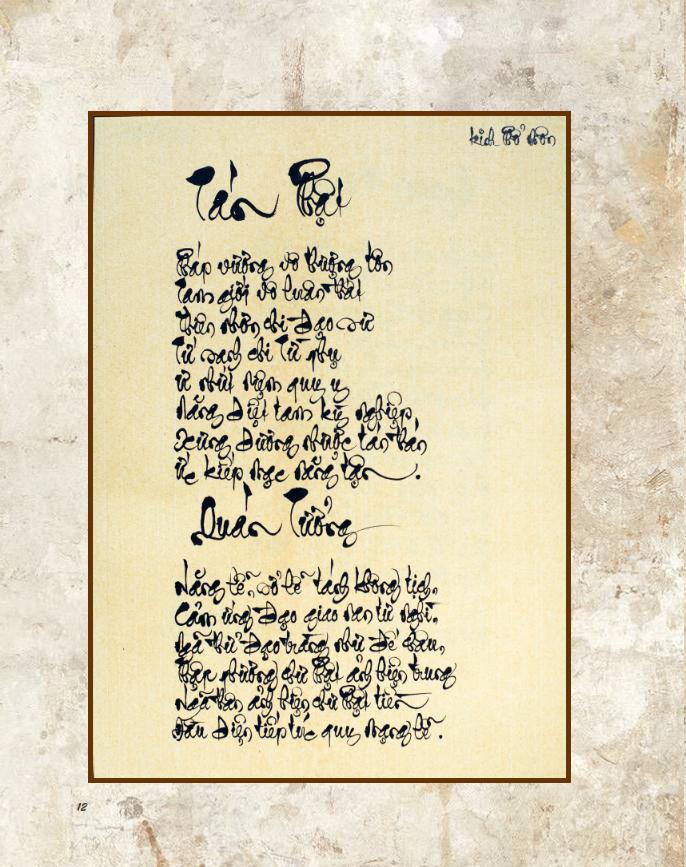 kinh Phổ Môn
Tán Phật
Pháp vương vô thượng tôn
Tam giới vô luân thất
Thiên nhơn chi Đạo sư
Tứ sanh chi Từ phụ
Ư nhứt niệm quy y
Năng diệt tam kỳ nghiệp
Xưng dương nhược tán thán
Ức kiếp mạc năng tận.
Quán Tưởng
Năng lễ, sở lễ tánh không tịch,
Cảm ứng đạo giao nan tư nghì,
Ngã thử đạo tràng như Đế châu,
Thập phương chư Phật ảnh hiện trung
Ngã thân ảnh hiện chư Phật tiền
Đầu diện tiếp túc quy mạng lễ.
12